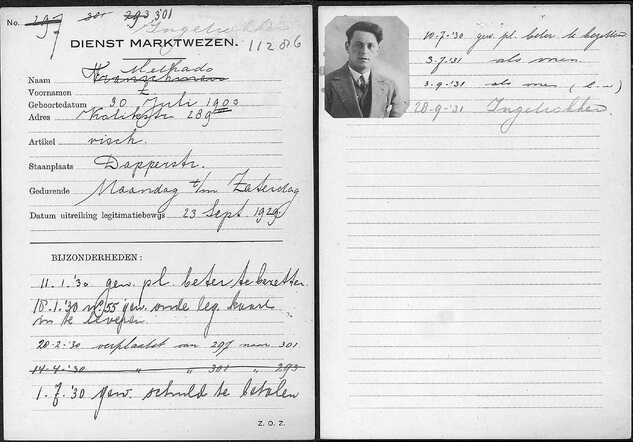 No. 297 301 293 301
Ingetrokken
DIENST MARKTWEZEN. 11286
Melhado
Naam Franschman
Voornamen I
Geboortedatum 30 Juli 1903
Adres Valkstr 289
Artikel visch.
Staanplaats Dapperstr.
Gedurende Maandag t/m Zaterdag
Datum uitreiking legitimatiebewijs 23 Sept. 1929
BIJZONDERHEDEN:
11.1.'30 gew. pl. beter te bezetten
18.1.'30 № 55 gew. oude leg. kaart
in te leveren.
20-2-'30 verplaatst van 297 naar 301
14-4-'30 " " 301 " 293
1.7.'30 gew. schuld te betalen
Z.O.Z.
10.7.'30 gew. pl. beter te bezetten
3.7.'31 als voren.
3.9.'31 als voren
28-9-'31 Ingetrokken.